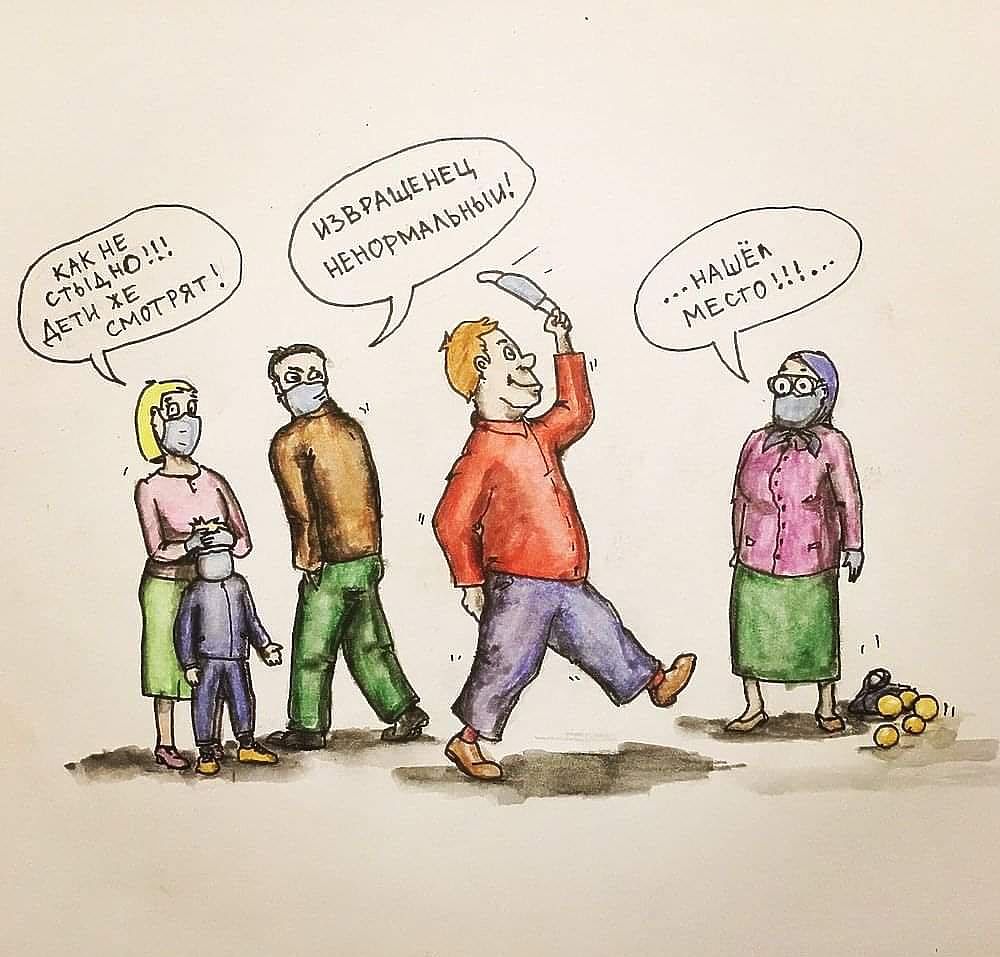 КАК НЕ
СТЫДНО!!!
ДЕТИ ЖЕ
СМОТРЯТ!
ИЗВРАЩЕНЕЦ
НЕНОРМАЛЬНЫЙ!
...НАШЁЛ
МЕСТО!!!...